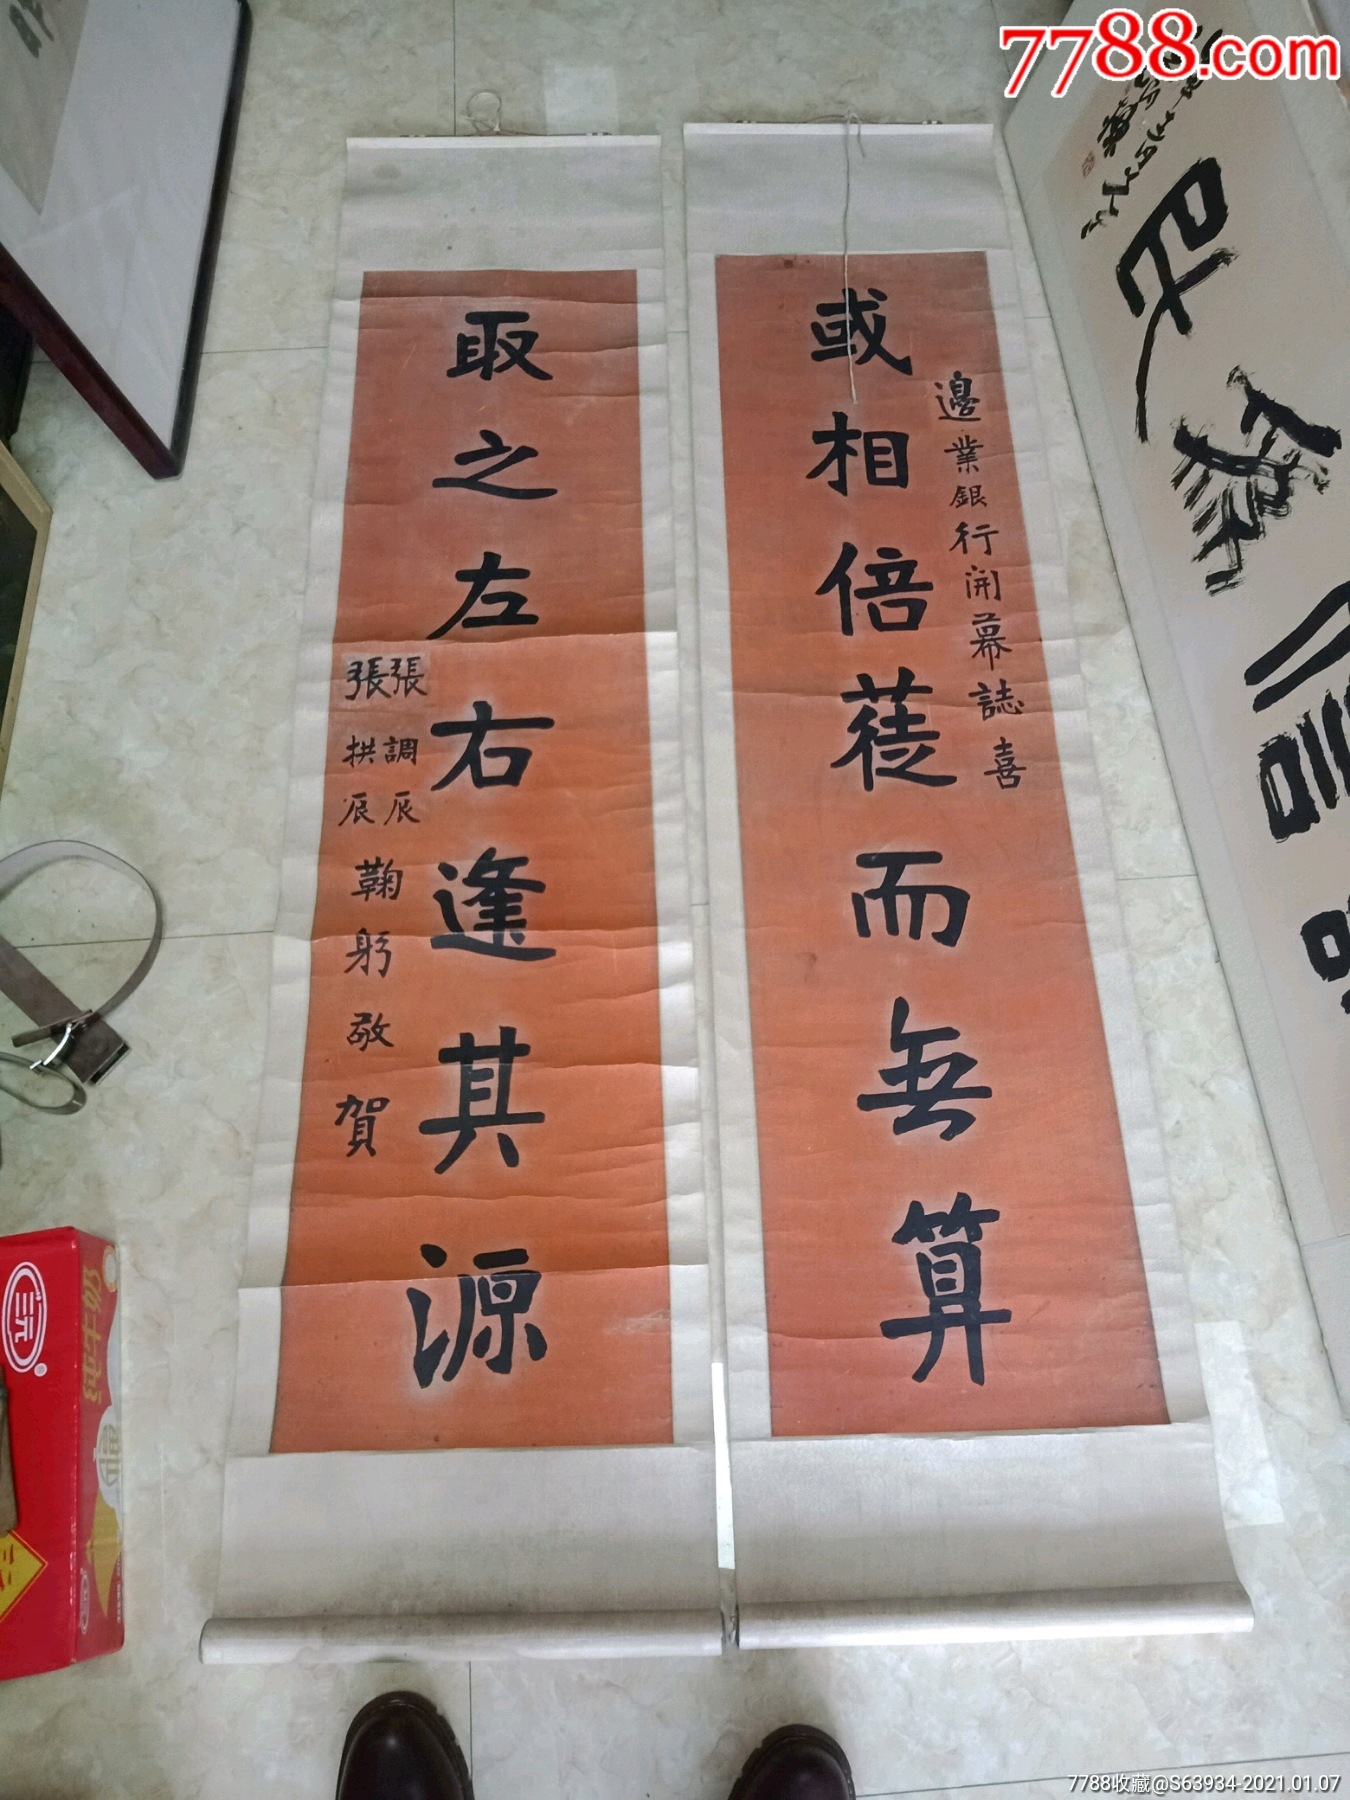 7788.com
或相倍蓰而無算
邊業銀行開幕誌喜
取之左右逢其源
張調辰
張拱辰
鞠躬敬賀
三元
纯牛奶
7788收藏@S63934-2021.01.07